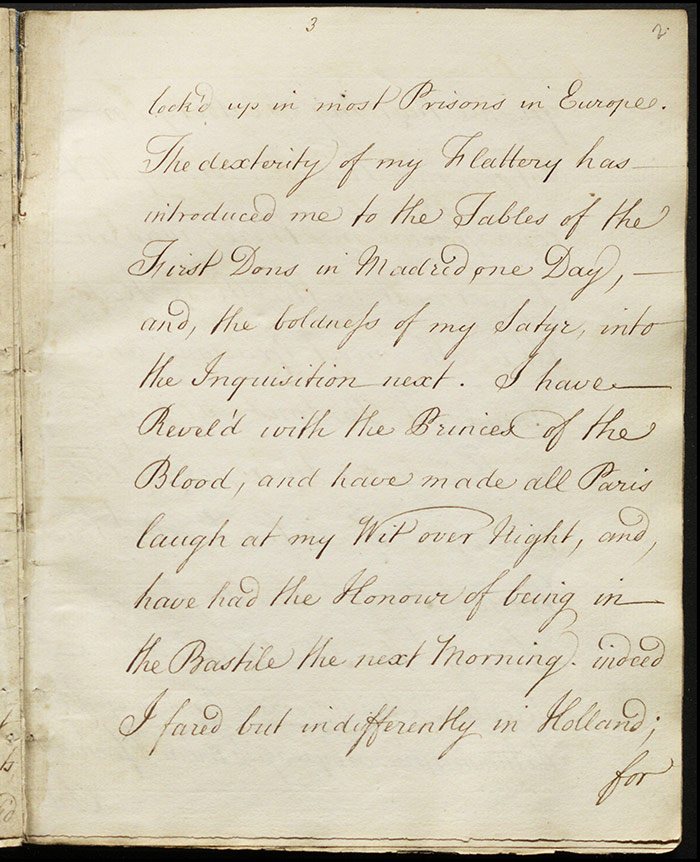 3 2
lock'd up in most Prisons in Europe.
The dexterity of my Flattery has
introduced me to the Tables of the
First Dons in Madrid, one Day,
and, the boldneſs of my Satyr, into
the Inquisition next. I have
Revel'd with the Princes of the
Blood, and have made all Paris
laugh at my Wit over Night, and,
have had the Honour of being in
the Bastile the next Morning. indeed
I fared but indifferently in Holland;
for